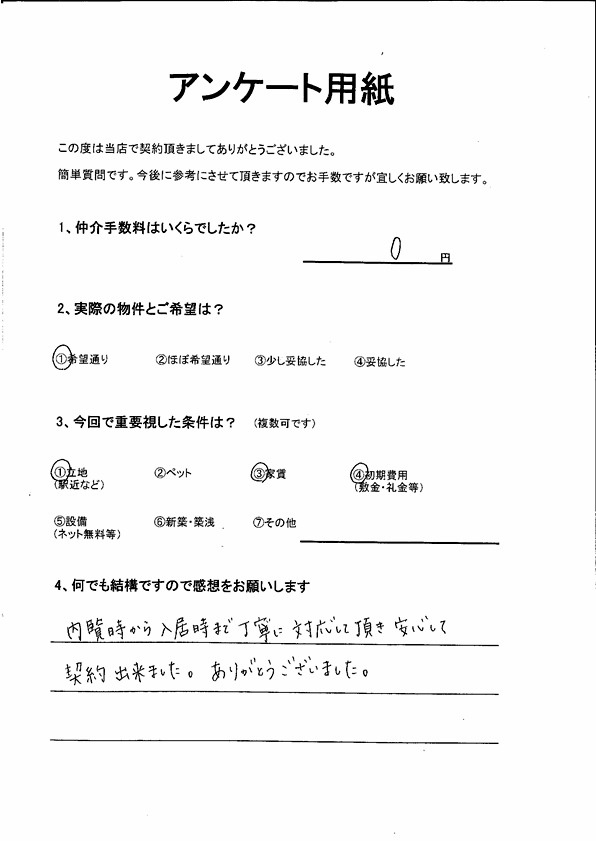 アンケート用紙
この度は当店で契約頂きましてありがとうございました。
簡単質問です。今後に参考にさせて頂きますのでお手数ですが宜しくお願い致します。
1、仲介手数料はいくらでしたか？
0 円
2、実際の物件とご希望は？
①希望通り ②ほぼ希望通り ③少し妥協した ④妥協した
3、今回で重要視した条件は？ （複数可です）
①立地 ②ペット ③家賃 ④初期費用
（駅近など） （敷金・礼金等）
⑤設備 ⑥新築・築浅 ⑦その他
（ネット無料等）
4、何でも結構ですので感想をお願いします
内覧時から入居時まで丁寧に対応して頂き安心して
契約出来ました。ありがとうございました。